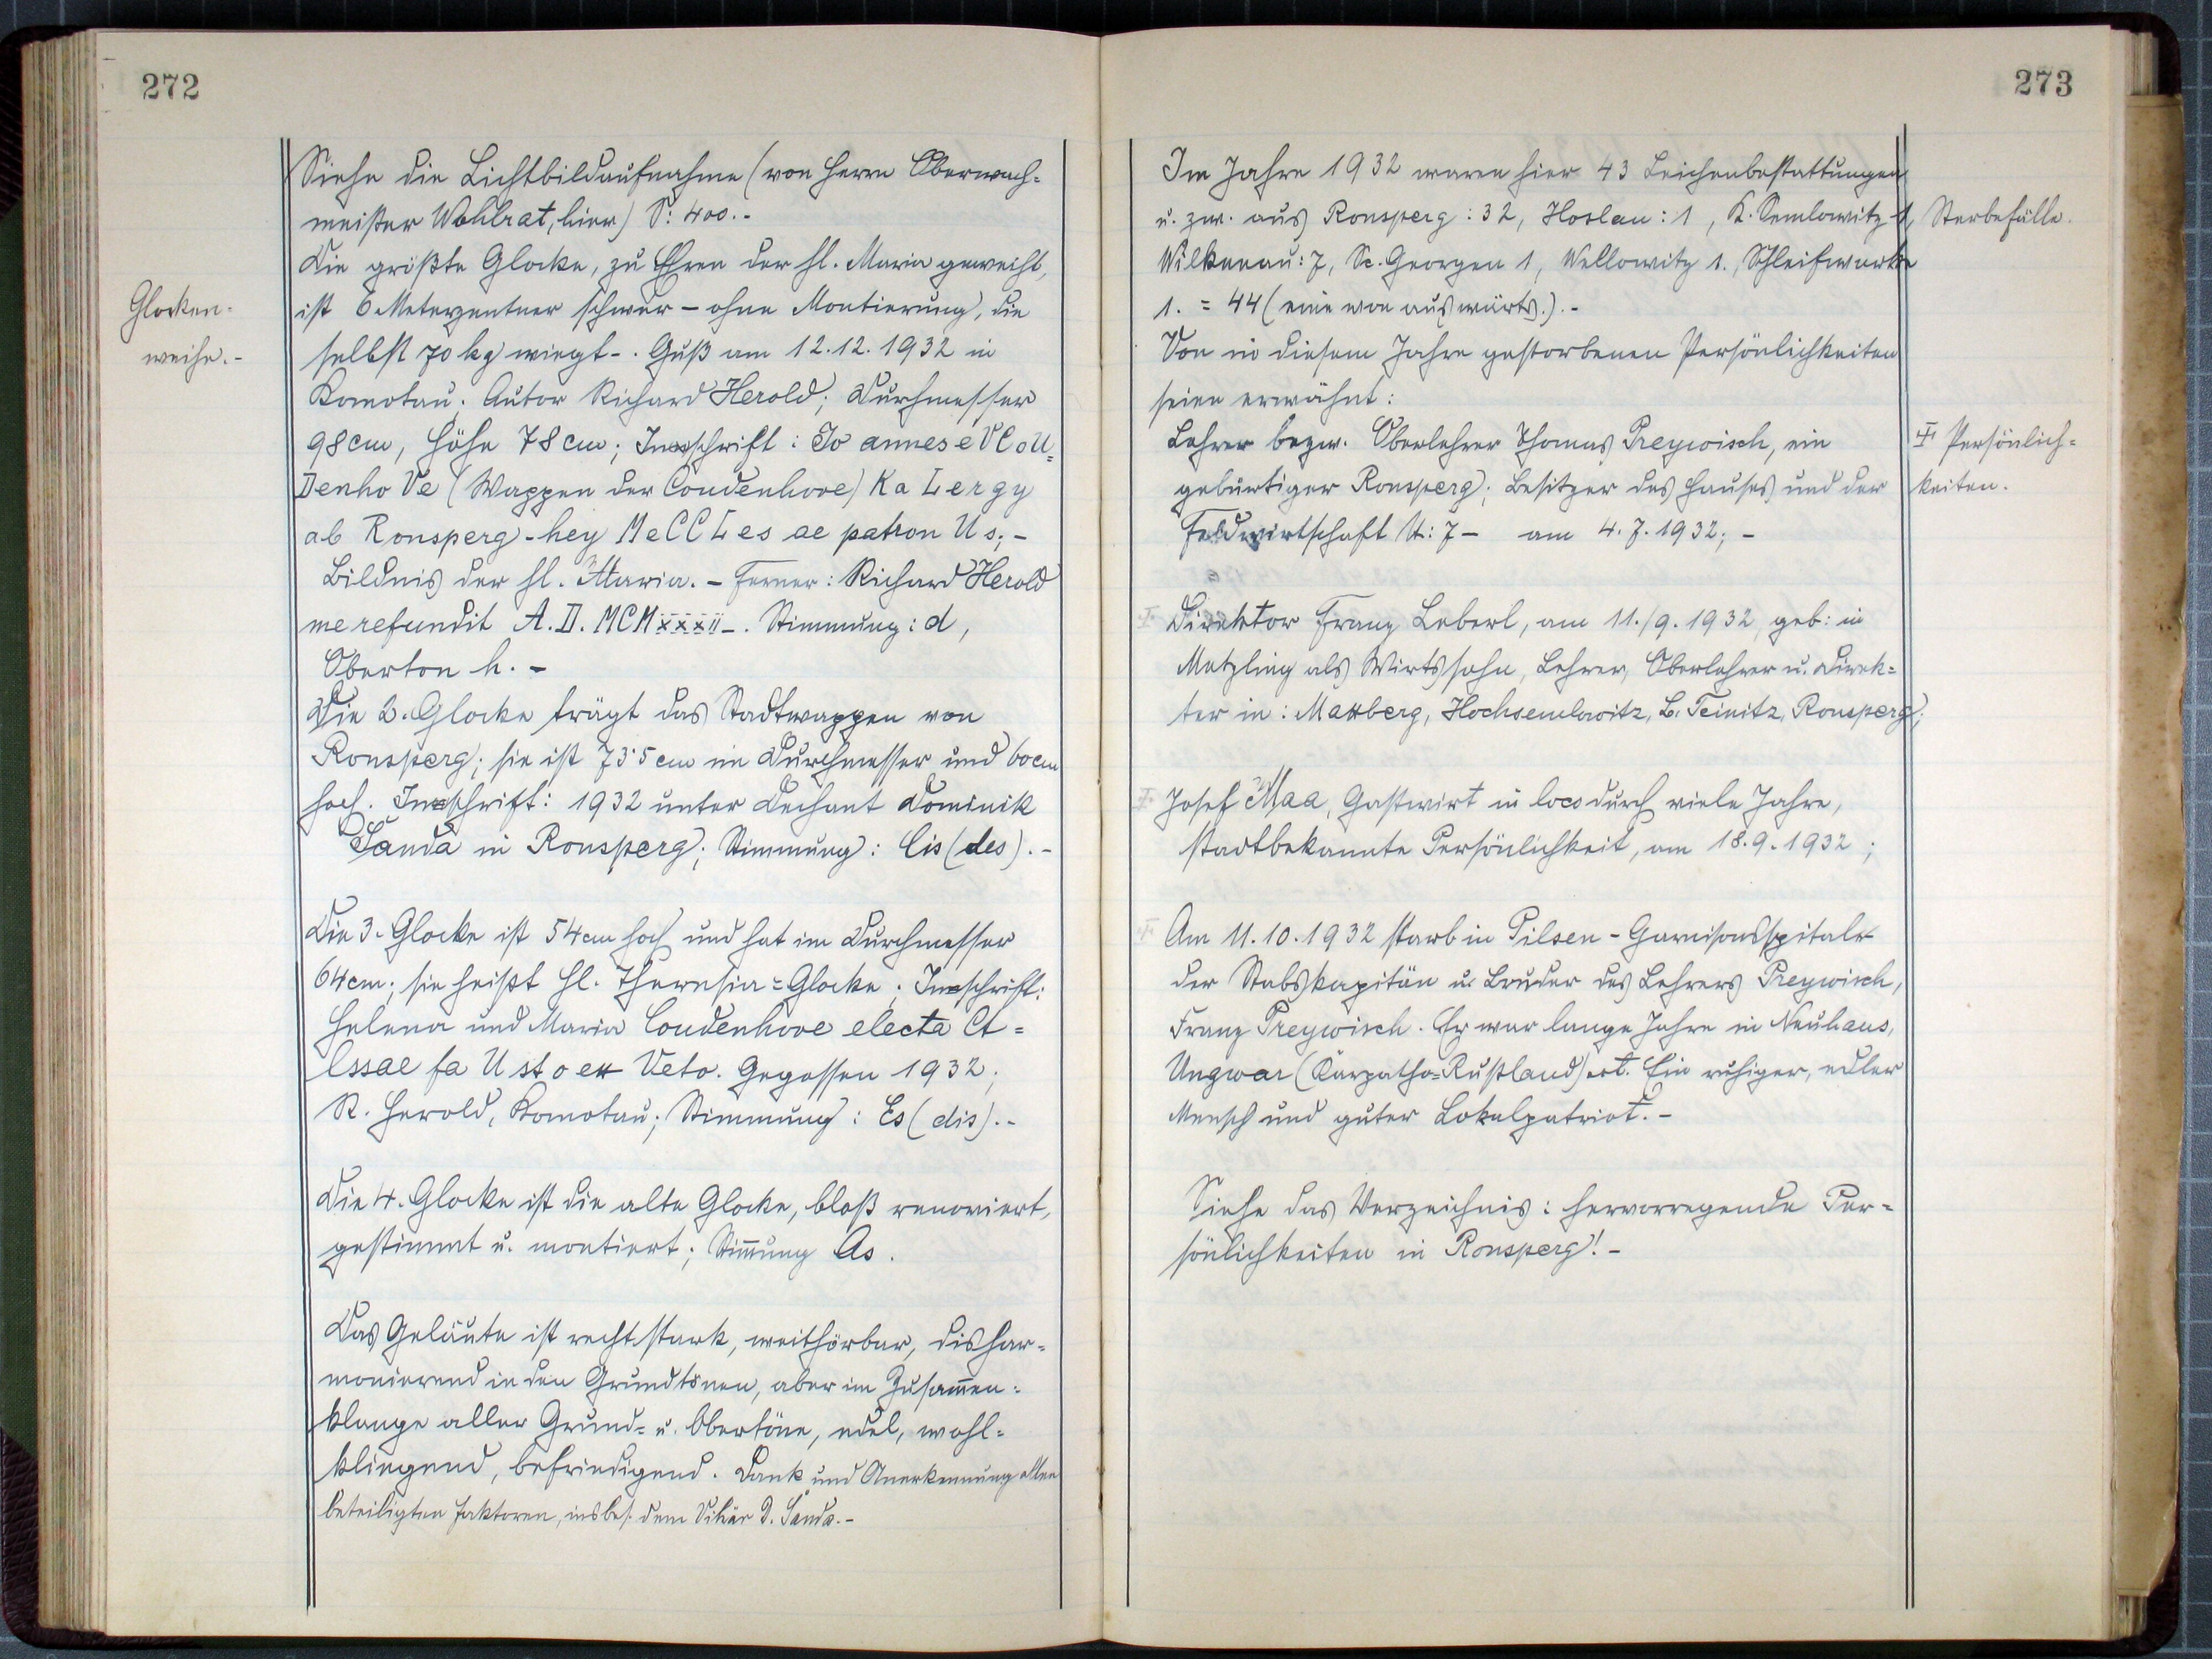 272
Siehe die Lichtbildaufnahme (von Herrn Oberwach=
meister Wohlrat, hier) S: 400.-
Die größte Glocke, zu Ehren der hl. Maria geweiht,
Glocken=
weihe.-
ist 6 Meterzentner schwer – ohne Montierung, die
selbst 70 kg wiegt –. Guß am 12.12.1932 in
Komotau. Autor Richard Herold; Durchmesser
98 cm, Höhe 78 cm; Inschrift: Jo annes e VC o U=
Denho Ve (Wappen der Coudenhove) Ka Lergy
ab Ronsperg-hey MeCCLes ae patron Us;-
Bildnis der hl. Maria. – Ferner: Richard Herold
me refundit A. D. MCMxxxii –. Stimmung: d,
Oberton h. –
Die 2. Glocke trägt das Stadtwappen von
Ronsperg; sie ist 73·5 cm im Durchmesser und 60 cm
hoch. Inschrift: 1932 unter Dechant Dominik
Šanda in Ronsperg; Stimmung: Cis (des).-
Die 3. Glocke ist 54 cm hoch und hat im Durchmesser
64 cm; sie heißt hl. Theresia=Glocke. Inschrift:
Helena und Maria Coudenhove electa Ct=
Cssae fa U sto ex Veto. Gegossen 1932;
R. Herold, Komotau; Stimmung: Es (dis).-
Die 4. Glocke ist die alte Glocke, bloß renoviert,
gestimmt u. montiert; Stim̄ung As.
Das Geläute ist recht stark, weithörbar, dishar=
monierend in den Grundtönen, aber im Zusam̄en=
klange aller Grund= u. Obertöne, edel, wohl=
klingend, befriedigend. Dank und Anerkennung allen
beteiligten Faktoren, insbes. dem Vikär D. Šanda.-
273
Im Jahre 1932 waren hier 43 Leichenbestattungen
u. zw. aus Ronsperg: 32, Hoslau: 1, K. Semlowitz 1,
Sterbefälle.
Wilkenau: 7, St. Georgen 1, Wellowitz 1., Schleifwerke
1. = 44 (eine von auswärts.).-
Von in diesem Jahre gestorbenen Persönlichkeiten
seien erwähnt:
Lehrer bezw. Oberlehrer Thomas Preywisch, ein
‡ Persönlich=
keiten.
gebürtiger Ronsperg; Besitzer des Hauses und der
Feldwirtschaft N: 7 – am 4.7.1932; –
‡ Direktor Franz Leberl, am 11./9.1932, geb: in
Metzling als Wirtssohn, Lehrer, Oberlehrer u. Direk=
ter in: Maxberg, Hochsemlowitz, B. Teinitz, Ronsperg;
‡ Josef Maa, Gastwirt in loco durch viele Jahre,
stadtbekannte Persönlichkeit, am 18.9.1932;
‡ Am 11.10.1932 starb in Pilsen-Garnisonsspitale
der Stabskapitän u. Bruder des Lehrers Preywisch,
Franz Preywisch. Er war lange Jahre in Neuhaus,
Ungwar (Karpatho=Rußland) ect. Ein ruhiger, edler
Mensch und guter Lokalpatriot.-
Siehe das Verzeichnis: hervorragende Per=
sönlichkeiten in Ronsperg!-